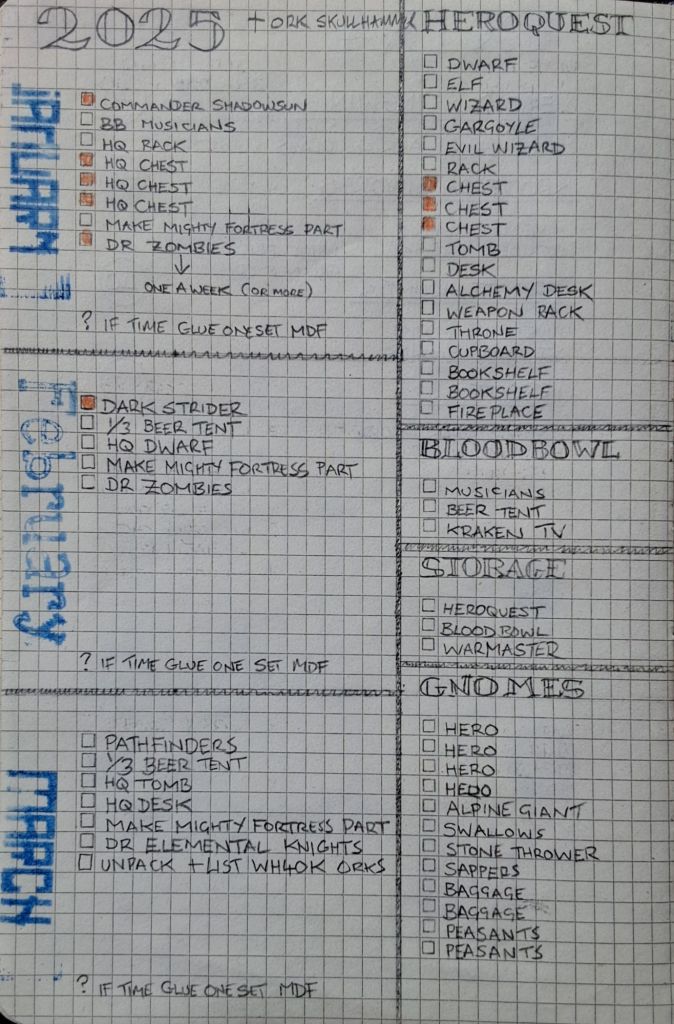 2025 + ORK SKULLHAMMER
JANUARY
COMMANDER SHADOWSUN
BB MUSICIANS
HQ RACK
HQ CHEST
HQ CHEST
HQ CHEST
MAKE MIGHTY FORTRESS PART
DR ZOMBIES
ONE A WEEK (OR MORE)
? IF TIME GLUE ONE SET MDF
February
DARK STRIDER
1/3 BEER TENT
HQ DWARF
MAKE MIGHTY FORTRESS PART
DR ZOMBIES
? IF TIME GLUE ONE SET MDF
MARCH
PATHFINDERS
1/3 BEER TENT
HQ TOMB
HQ DESK
MAKE MIGHTY FORTRESS PART
DR ELEMENTAL KNIGHTS
UNPACK + LIST WH40K ORKS
? IF TIME GLUE ONE SET MDF
HEROQUEST
DWARF
ELF
WIZARD
GARGOYLE
EVIL WIZARD
RACK
CHEST
CHEST
CHEST
TOMB
DESK
ALCHEMY DESK
WEAPON RACK
THRONE
CUPBOARD
BOOKSHELF
BOOKSHELF
FIREPLACE
BLOODBOWL
MUSICIANS
BEER TENT
KRAKEN TV
STORAGE
HEROQUEST
BLOODBOWL
WARMASTER
GNOMES
HERO
HERO
HERO
HERO
ALPINE GIANT
SWALLOWS
STONE THROWER
SAPPERS
BAGGAGE
BAGGAGE
PEASANTS
PEASANTS